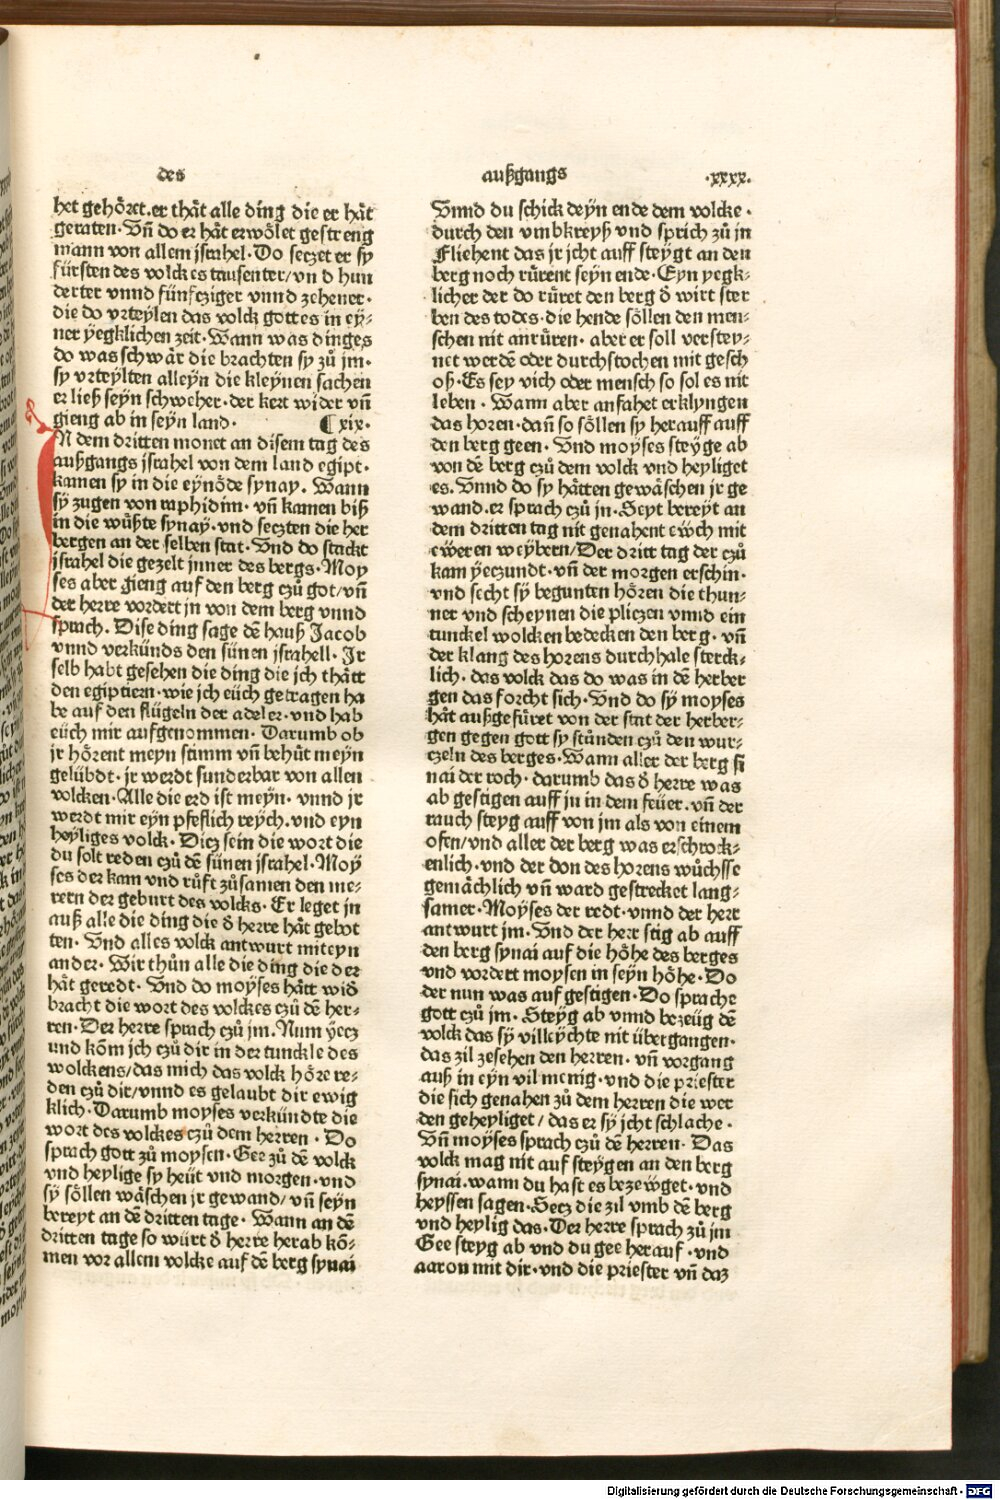 des
außgangs
·xxxx.
het gehöret.er thät alle ding die er hät
geraten·Vñ do er hät erwölet gestreng
mann von allem jsrahel·Do seczet er sy
fürsten des volckes tausenter/vnd hun
derter vnnd fünfcziger vnnd zehener·
die do vrteylen das volck gottes in ey⸗
ner ÿegklichen zeit·Wann was dinges
do was schwär die brachten sy zů jm·
sy vrteylten alleyn die kleynen sachen
er ließ seyn schweher·der kert wider vñ
gieng ab in seyn land· ¶xix·
N dem dritten monet an disem tag des
außgangs jsrahel von dem land egipt·
kamen sy in die eynöde synay. Wann
sÿ zugen von raphidim· vñ kamen biß
in die wůßte synaÿ·vnd seczten die her
bergen an der selben stat·Vnd do stackt
jsrahel die gezelt jnner des bergs·Moy
ses aber gieng auf den berg czů got/vñ
der herre vordert jn von dem berg vnnd
sprach. Dise ding sage dē hauß Jacob
vnnd verkünds den sünen jsrahell· Jr
selb habt gesehen die ding die jch thätt
den egiptiern·wie jch eüch getragen ha
be auf den flügeln der adeler·vnd hab
eüch mir aufgenommen· Darumb ob
jr hörent meyn stimm vñ behüt meyn
gelübdt·jr werdt sunderbar von allen
volcken·Alle die erd ist meÿn· vnnd jr
werdt mir eÿn pfeflich reÿch.vnd eyn
heyliges volck·Dicz sein die wort die
du solt reden czů dē sünen jsrahel·Moÿ
ses der kam vnd růft zůsamen den me⸗
rern der geburt des volcks·Er leget jn
auß alle die ding die ð herre hät gebot
ten· Vnd alles volck antwurt miteyn
ander·Wir thůn alle die ding die der
hät geredt· Vnd do moÿses hätt widð
bracht die wort des volckes czů dē her⸗
ren·Der herre sprach czů jm·Num ÿecz
und kōm jch czů dir in der tunckle des
wolckens/das mich das volck höre re⸗
den czů dir/vnnd es gelaubt dir ewig
klich·Darumb moyses verkündte die
wort des volckes czů dem herren · Do
sprach gott zů moysen·Gee zů dē volck
vnd heylige sy heüt vnd morgen·vnd
sÿ söllen wäschen jr gewand/vñ seyn
bereyt an dē dritten tage· Wann an dē
dritten tage so würt ð herre herab kō⸗
men vor allem volcke auf dē berg synai
Vnnd du schick deÿn ende dem volcke·
durch den vmbkreyß vnd sprich zů jn
Fliehent das jr jcht auff steÿgt an den
berg noch rürent seÿn ende·Eyn yegk⸗
licher der do rüret den berg ð wirt ster
ben des todes·die hende söllen den men⸗
schen nit anrüren· aber er soll verstey⸗
net werdē oder durchstochen mit gesch
oß·Es sey vich oder mensch so sol es nit
leben · Wann aber anfahet erklyngen
das horen·dañ so söllen sy herauff auff
den berg geen· Vnd moÿses steÿge ab
von dē berg czů dem volck vnd heyliget
es.Vnnd do sy hätten gewäschen jr ge
wand.er sprach czů jn·Seyt bereyt an
dem dritten tag nit genahent eẅch mit
eẅeren weÿbern/Der dritt tag der czů
kam ÿeczundt·vñ der morgen erschin·
vnd secht sÿ begunten hören die thun⸗
ner vnd scheynen die pliczen vnnd ein
tunckel wolcken bedecken den berg· vñ
der klang des horens durchhale sterck⸗
lich. das volck das do was in dē herber
gen das forcht sich·Vnd do sÿ moyses
hät außgefüret von der stat der herber⸗
gen gegen gott sy stůnden czů den wur⸗
czeln des berges·Wann aller der berg si
nai der roch· darumb das ð herre was
ab gestigen auff jn in dem feüer.vñ der
rauch steyg auff von jm als von einem
ofen/vnd aller der berg was erschrock⸗
enlich·vnd der don des horens wůchsse
gemächlich vñ ward gestrecket lang⸗
samer·Moÿses der redt·vnnd der herr
antwurt jm·Vnd der herr stig ab auff
den berg synai auf die höhe des berges
vnd vordert moysen in seÿn höhe·Do
der nun was auf gestigen·Do sprache
gott czů jm· Steÿg ab vnnd bezeüg dē
volck das sÿ villeÿchte nit übergangen·
das zil zesehen den herren· vñ vorgang
auß in eÿn vil menig·vnd die priester
die sich genahen zů dem herren die wer
den geheyliget/das er sÿ jcht schlache·
Vñ moÿses sprach czů dē herren· Das
volck mag nit auf steÿgen an den berg
synai.wann du hast es bezeẅget·vnd
heyssen sagen·Secz die zil vmb dē berg
vnd heylig das·Der herre sprach zů jm
Gee steyg ab vnd du gee herauf·vnd
aaron mit dir·vnd die priester vñ daz
Digitalisierung gefördert durch die Deutsche Forschungsgemeinschaft - DFG